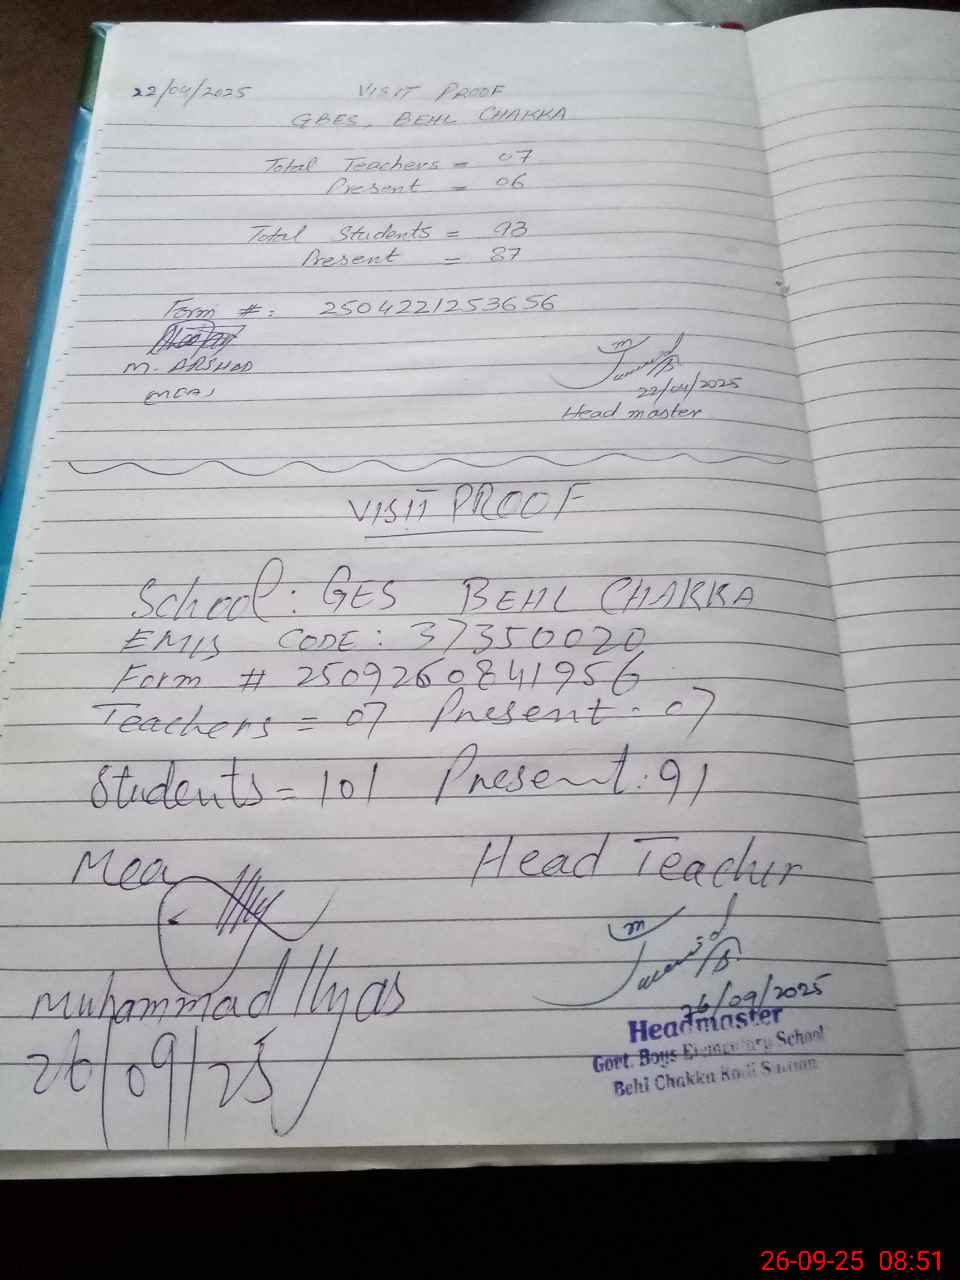 22/04/2025 VISIT PROOF
GBES, BEHL CHAKKA
Total Teachers = 07
Present = 06
Total Students = 93
Present = 87
Form #: 2504221253656
M. ARSHAD
MEA,
22/04/2025
Head master
VISIT PROOF
School: GES BEHL CHAKKA
EMIS CODE: 37350020
Form # 2509260841956
Teachers = 07 Present: 07
Students = 101 Present: 91
Mea Head Teacher
Muhammad Ilyas
26/09/25
26/09/2025
Headmaster
Govt. Boys Elementary School
Behl Chakka
26-09-25 08:51